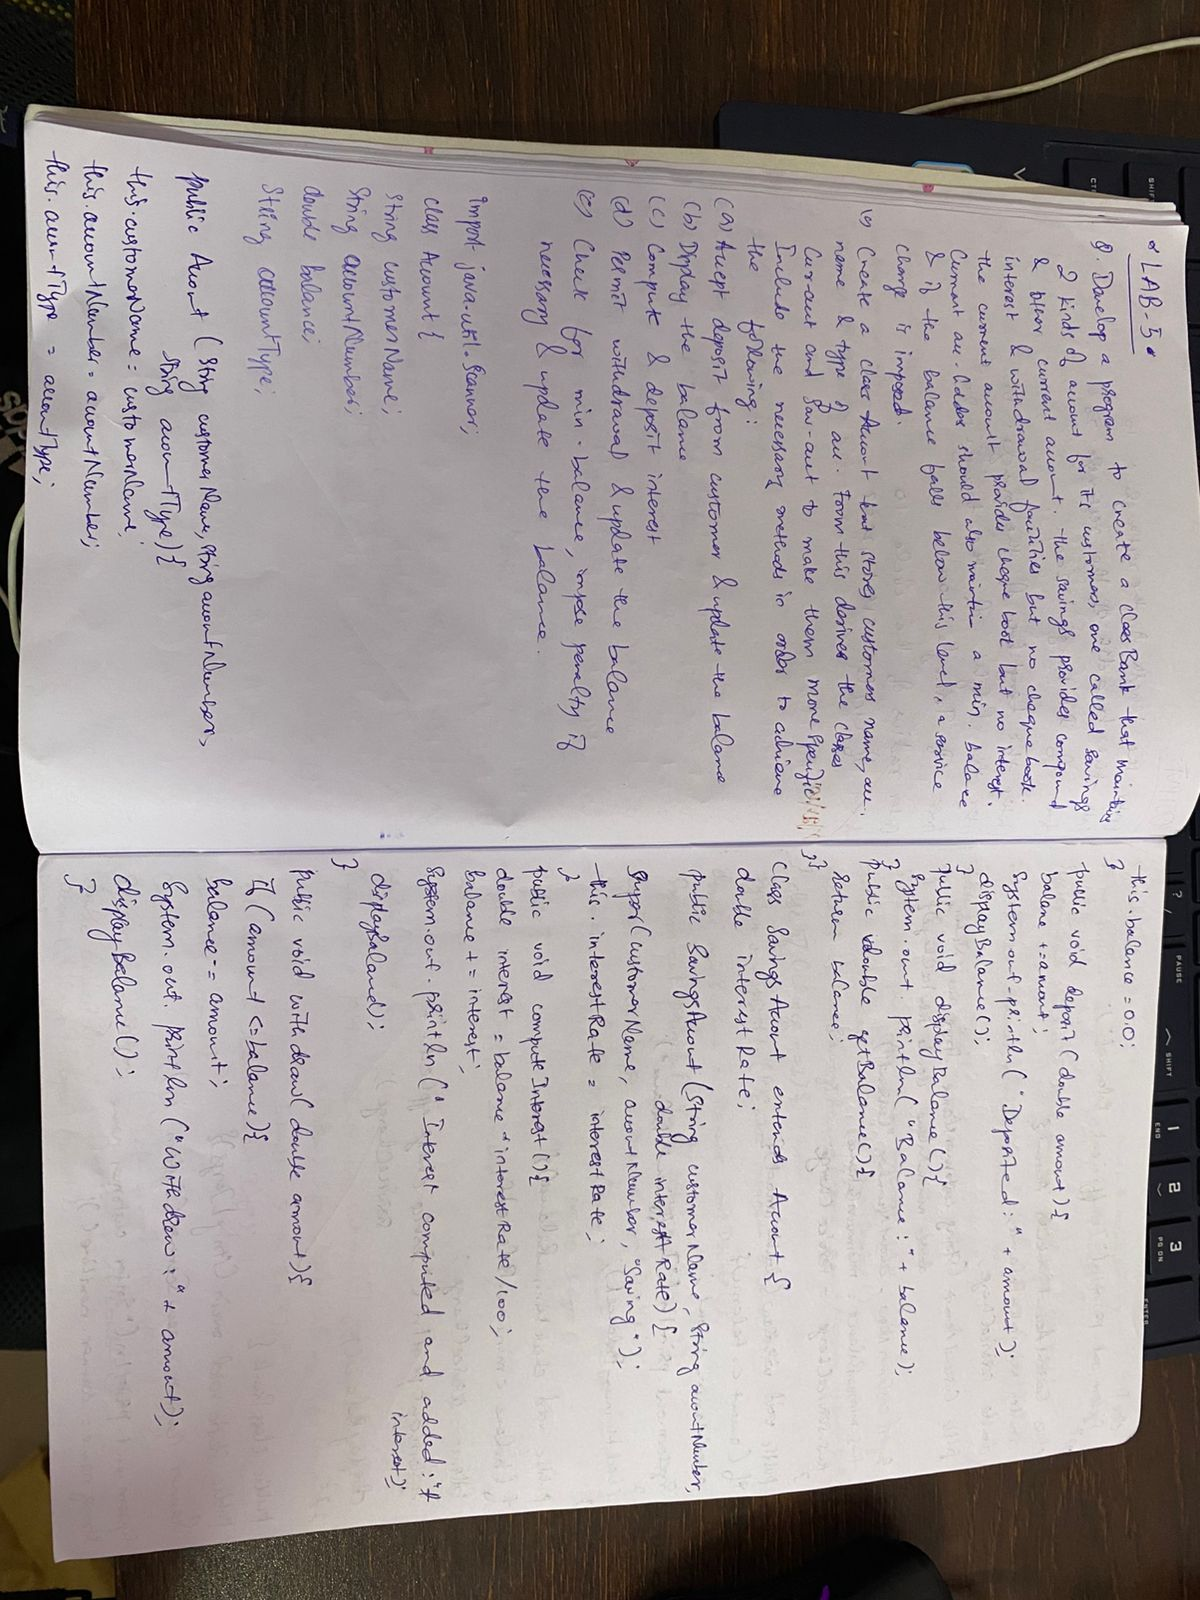 LAB-5
Q. Develop a program to create a class Bank that maintains
2 kinds of account for its customers, one called savings
& other current account. The savings provides compound
interest & withdrawal facilities but no cheque book.
the current account provides cheque book but no interest.
Current acc. holders should also maintain a min. balance
& if the balance falls below this level, a service
charge is imposed.
Create a class Account that stores customers name, acc.
name & type of acc. From this derives the classes
Cur-acct and Sav-acct to make them more specific
Include the necessary methods in order to achieve
the following:
(a) Accept deposit from customer & update the balance
(b) Display the balance
(c) Compute & deposit interest
(d) Permit withdrawal & update the balance
(e) Check for min. balance, impose penalty if
necessary & update the balance.
import java.util.Scanner;
class Account {
String customerName;
String accountNumber;
double balance;
String accountType;
public Account (String customerName, String accountNumber,
String accountType) {
this.customerName = customerName;
this.accountNumber = accountNumber;
this.accountType = accountType;
this.balance = 0.0;
}
public void deposit (double amount) {
balance += amount;
System.out.println("Deposited: " + amount);
displayBalance();
}
public void displayBalance () {
System.out.println("Balance: " + balance);
}
public double getBalance() {
return balance;
}}
class SavingsAccount extends Account {
double interestRate;
public SavingsAccount (String customerName, String accountNumber,
double interestRate) {
super(customerName, accountNumber, "Saving");
this.interestRate = interestRate;
}
public void computeInterest () {
double interest = balance * interestRate/100;
balance += interest;
System.out.println (" Interest computed and added: "+
interest);
displayBalance();
}
public void withdraw( double amount) {
if (amount <= balance) {
balance -= amount;
System.out.println ("Withdrew: " + amount);
displayBalance();
}
PAUSE
SHIFT
END
PG DN
ENTER
1
2
3